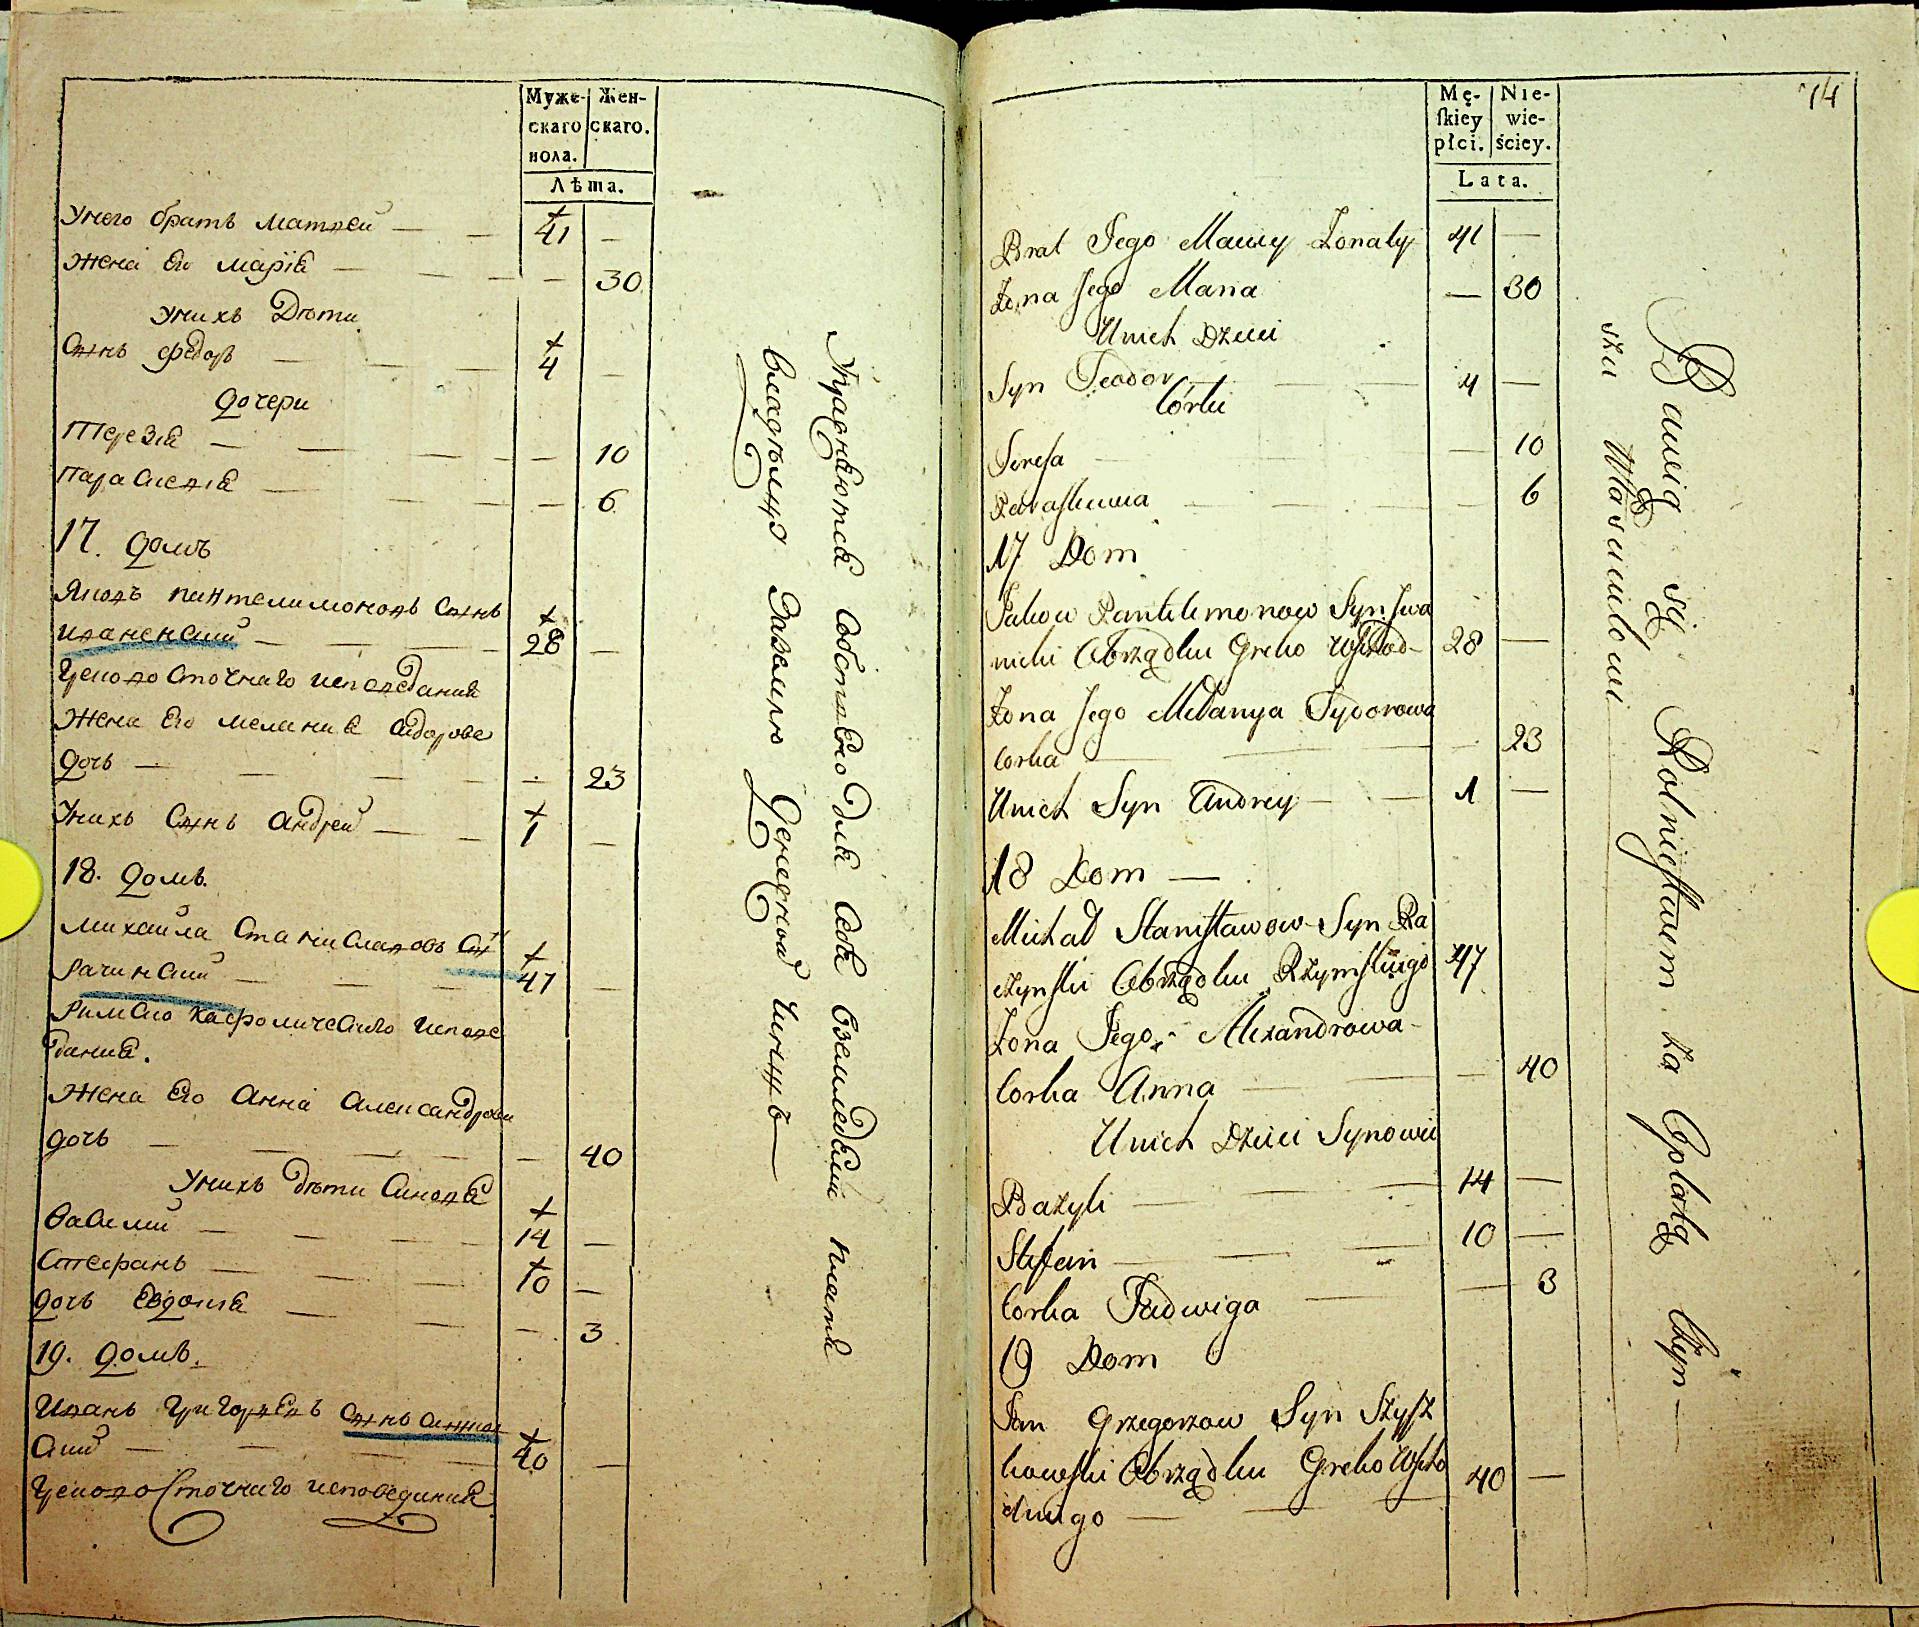 Муже-
скаго
пола.
Жен-
скаго.
Лѣта.
Унего братъ матвеи 41
Жена его мариа 30
унихъ Дѣти
Сынъ федоръ 4
дочери
Терезиа 10
Параскевиа 6
17. домъ
Яковъ пантелимоновъ Сынъ
иваненскии 28
Грековосточнаго исповеданиа
Жена его мелания Сидорова
дочь 23
Унихъ Сынъ андреи 1
18. домъ.
михаила Станиславовъ Сынъ
Рачинскии 47
Римско Кафолическаго испове
дания.
Жена его анна александрова
дочь 40
унихъ дѣти Синовя
Василии 14
Стефанъ 10
дочь 3
19. домъ.
Иванъ Григорьевъ Сынъ
ский 40
Грековосточнаго исповедания
Упражняются собственно для себя вземледелии платя
владѣлцу Заземлю денежнои чиншъ
74
Mę-
ſkiey
płci.
Nie-
wie-
ściey.
Lata.
Brat Jego Maciey Żonaty 41
Żona Jego Marya 30
Unich Dzieci
Syn Teodor 4
Córki
Teresa 10
Paraskiewia 6
17 Dom
Jakow Pantelimonow Syn Iwa
nicki Obrządku Greko Wschod- 28
Żona Jego Melanya Sydorowa
Corka 23
Unich Syn Andrey 1
18 Dom
Michał Stanisławow Syn Ra
czynski Obrządku Rzymskiego 47
Żona Jego Alexandrowa
Corka Anna 40
Unich Dzieci Synowie
Bazyli 14
Stefan 10
Corka Jadwiga 3
19 Dom
Jan Grzegorzow Syn Szysz
kowski Obrządku Greko Wscho 40
dniego
Bawią się Rolnictwem za Opłatą Czyn-
szu Włascicielowi